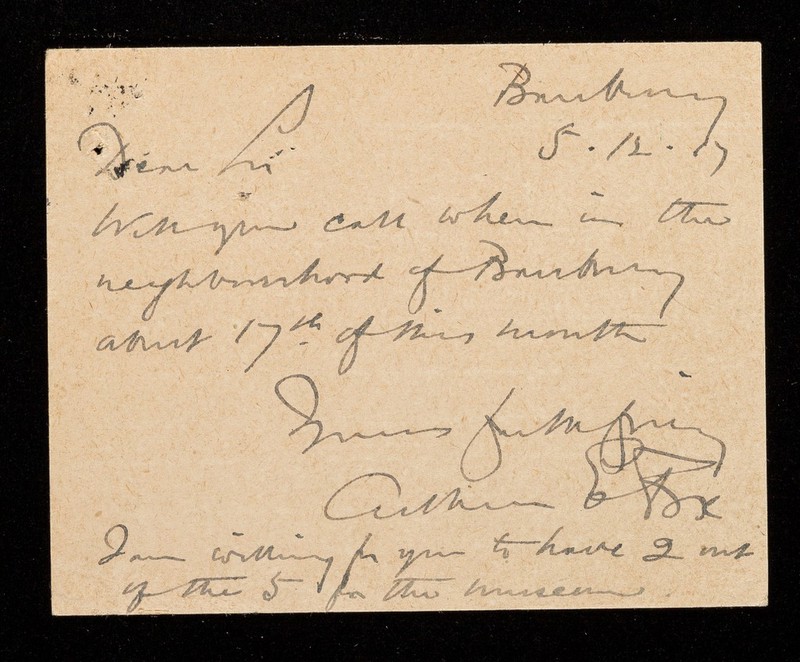 Banbury
5.12.17
Dear Sir
Will you call when in the
neighbourhood of Banbury
about 17th of this month
Yours faithfully
Arthur E Fox
I am willing for you to have 2 out
of the 5 for the museum